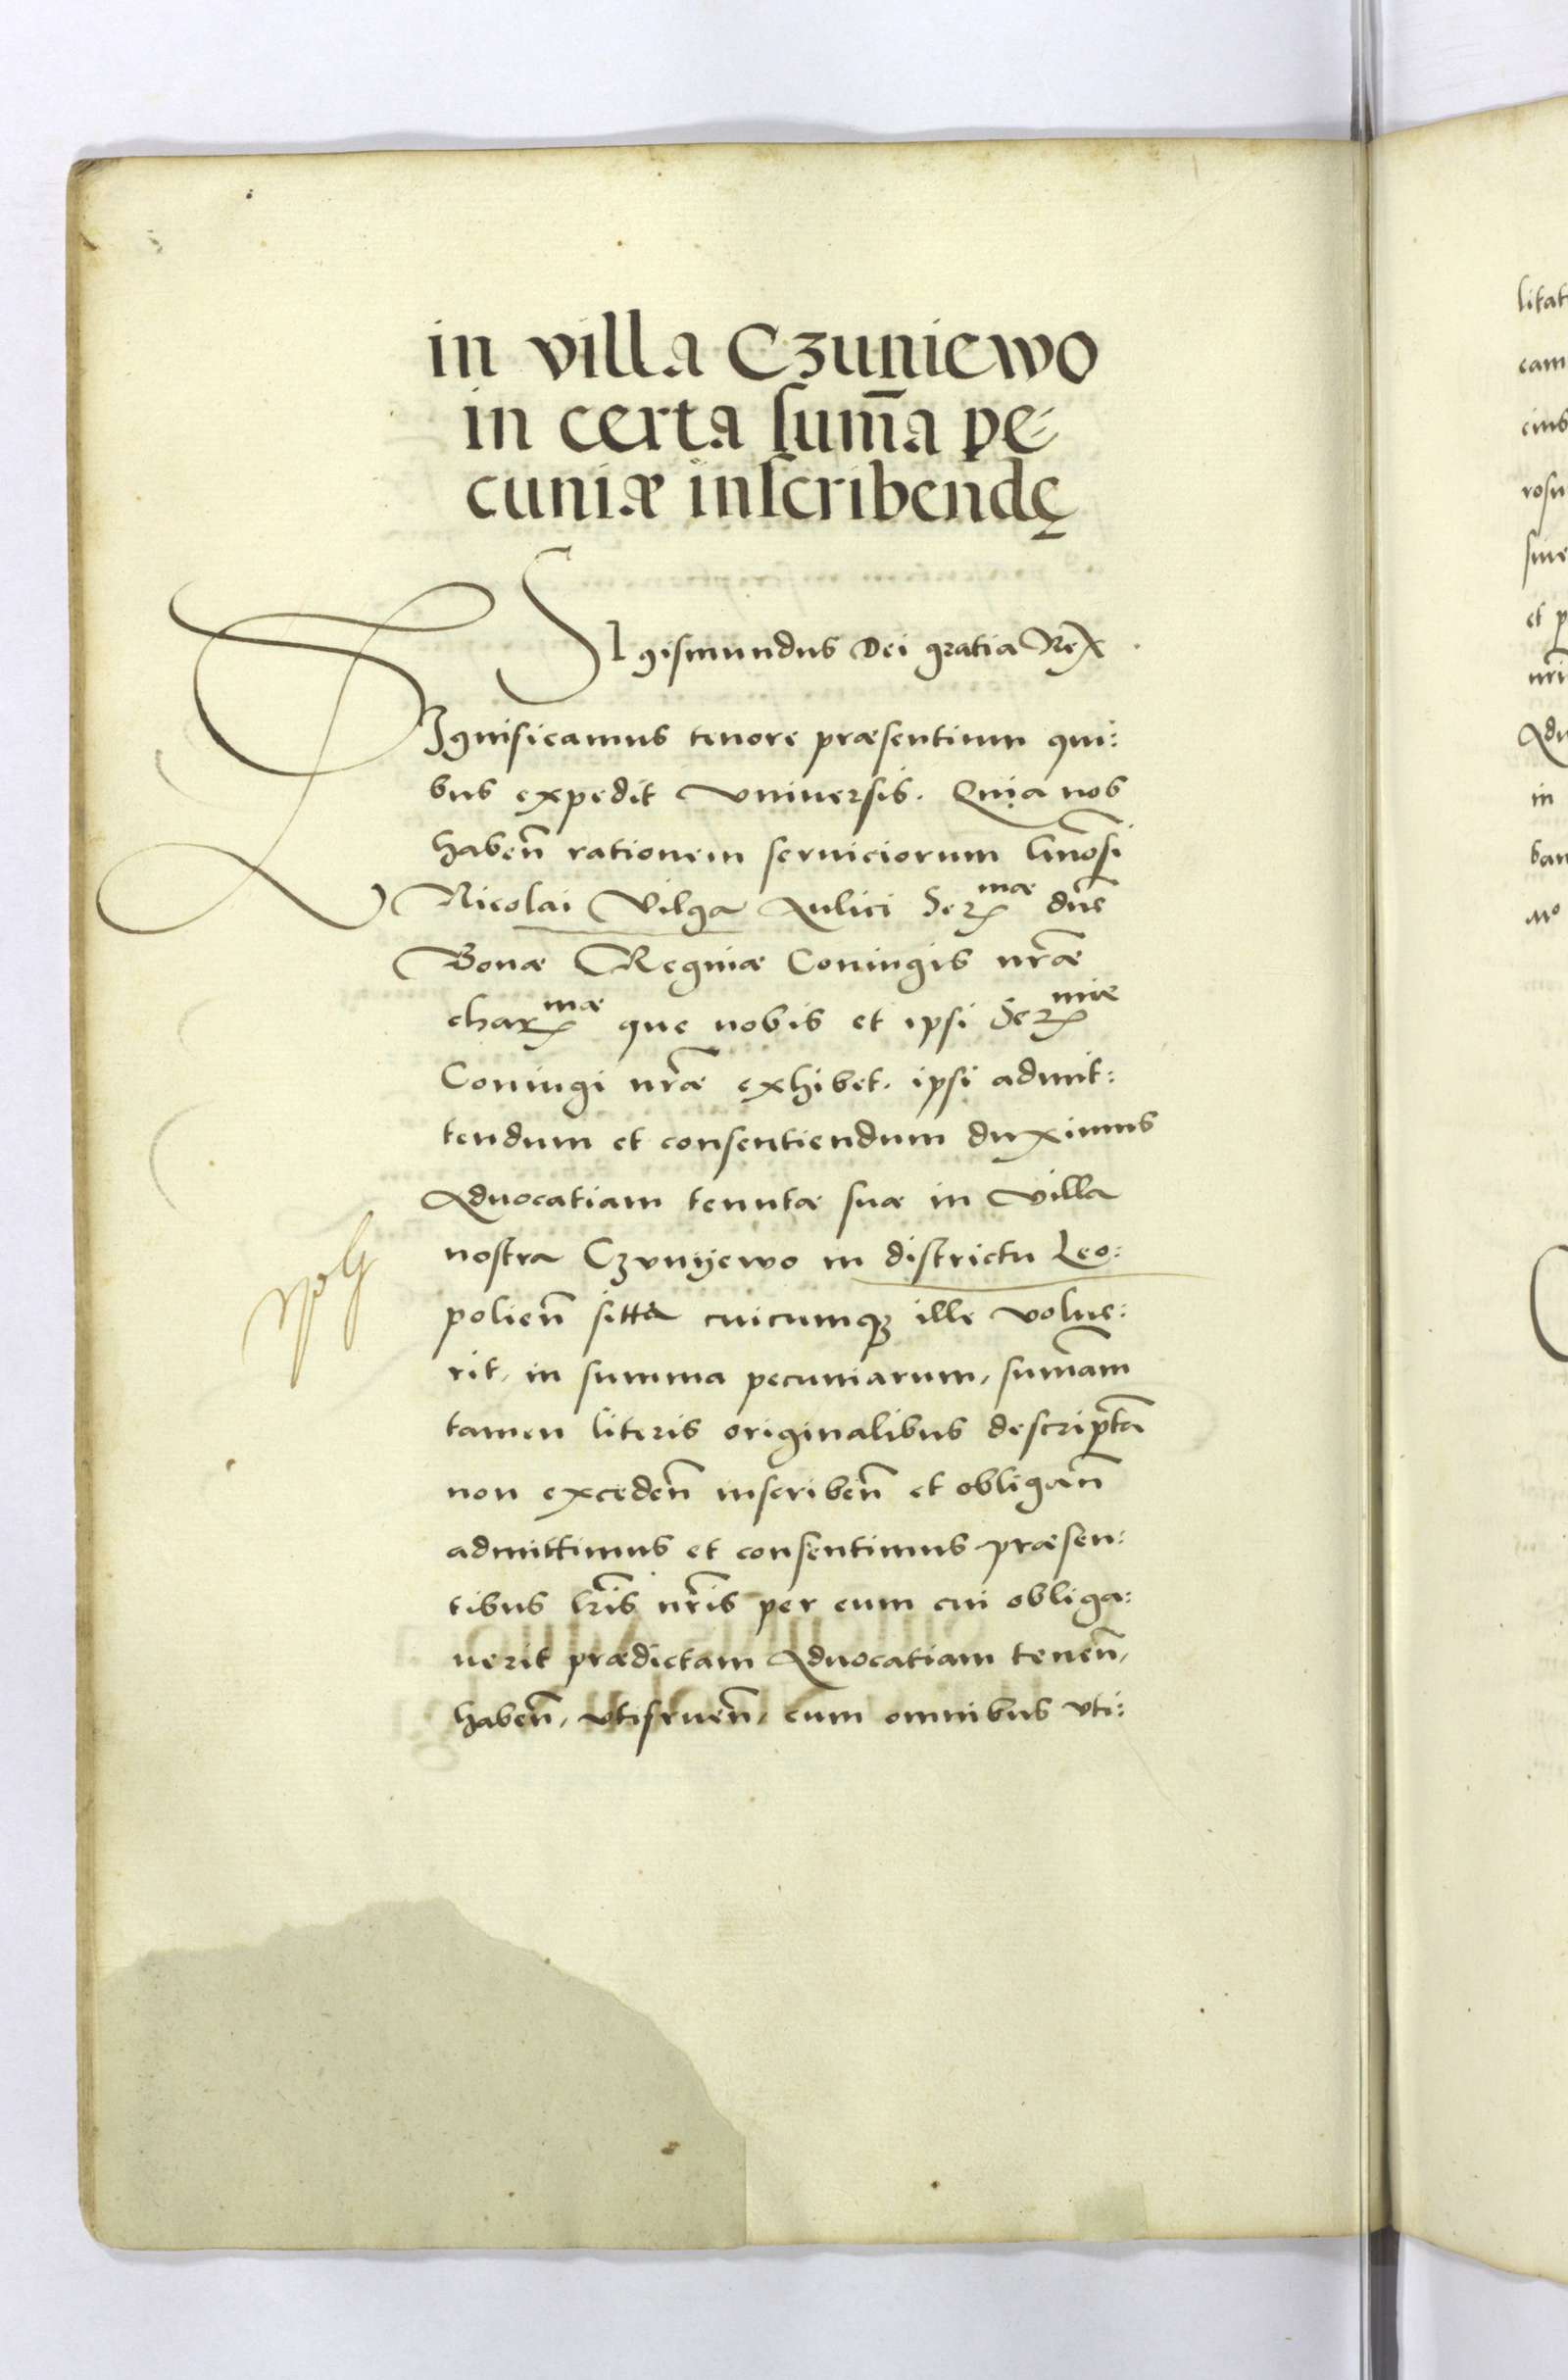 in villa Czuniewo
in certa sum̄a pe⸗
cuniæ inscribendę
SIgismundus Dei gratia Rex
SIgnificamus tenore præsentium qui:
bus expedit vniuersis. Quia nos
habeñ rationem seruiciorum Gnosi
Nicolai Vilga Aulici Sermae dnę
Bonæ Reginæ Coniugis nræ
charmae que nobis et ipsi Sermae
Coniugi nræ exhibet. ipsi admit:
tendum et consentiendum duximus
Aduocatiam tenutæ suæ in Villa
nostra Czvnijewo in districtu Leo:
polieñ sitta cuicumqʒ ille volue:
rit, in summa pecuniarum, sum̄am
tamen literis originalibus descriptā
non excedeñ inscribeñ et obligañ
admittimus et consentimus præsen:
tibus lr̄is nr̄is per eum cui obliga:
uerit prædictam Aduocatiam teneñ,
habeñ, vtifrueñ, cum omnibus vti:
litat
cam
eius
rosu
siue
et p
nri
Adu
in
ban